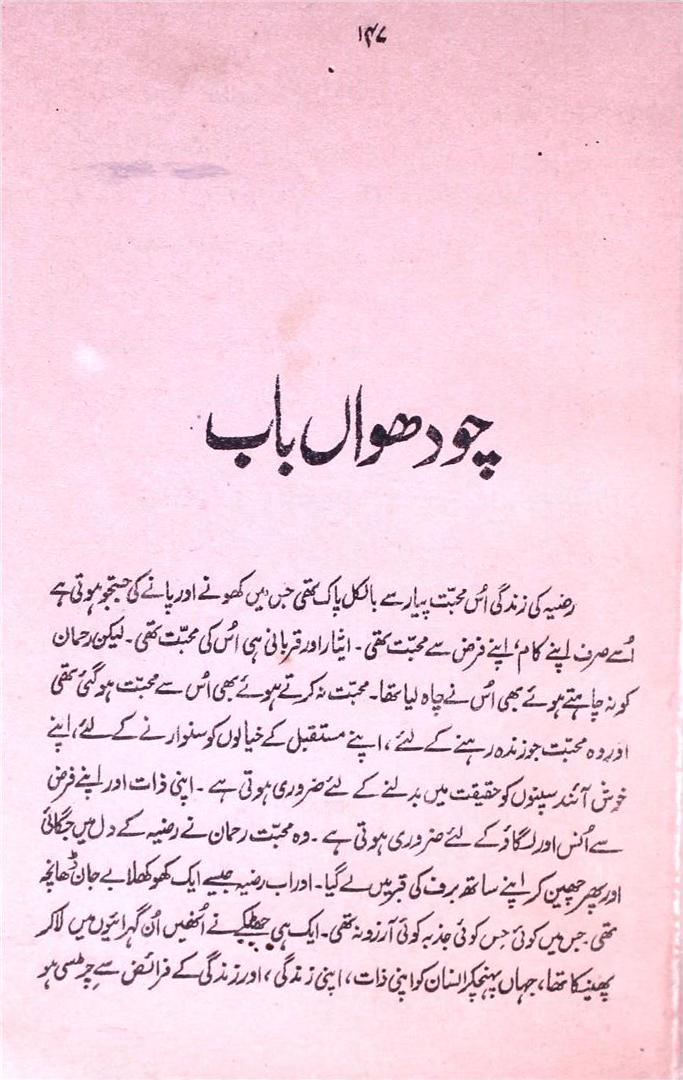 ۱۴۷
چودھواں باب
رضیہ کی زندگی اُس محبّت پیار سے بالکل پاک تھی جس میں کھونے اور پانے کی جستجو ہوتی ہے
اُسے صرف اپنے کام، اپنے فرض سے محبّت تھی۔ ایثار اور قربانی ہی اُس کی محبّت تھی۔ لیکن رحمان
کو نہ چاہتے ہوئے بھی اُس نے چاہ لیا تھا۔ محبّت نہ کرتے ہوئے بھی اُس سے محبّت ہو گئی تھی
اور وہ محبّت جو زندہ رہنے کے لئے، اپنے مستقبل کے خیالوں کو سنوارنے کے لئے، اپنے
خوش آئند سپنوں کو حقیقت میں بدلنے کے لئے ضروری ہوتی ہے۔ اپنی ذات اور اپنے فرض
سے اُنس اور لگاؤ کے لئے ضروری ہوتی ہے۔ وہ محبّت رحمان نے رضیہ کے دل میں جگائی
اور پھر چھین کر اپنے ساتھ برف کی قبر میں لے گیا۔ اور اب رضیہ جیسے ایک کھوکھلا بے جان ڈھانچہ
تھی۔ جس میں کوئی حِس کوئی جذبہ کوئی آرزو نہ تھی۔ ایک ہی جھٹکے نے اُنھیں اُن گہرائیوں میں لاکر
پھینکا تھا، جہاں پہنچکر انسان کو اپنی ذات، اپنی زندگی، اور زندگی کے فرائض سے چِڑسی ہو